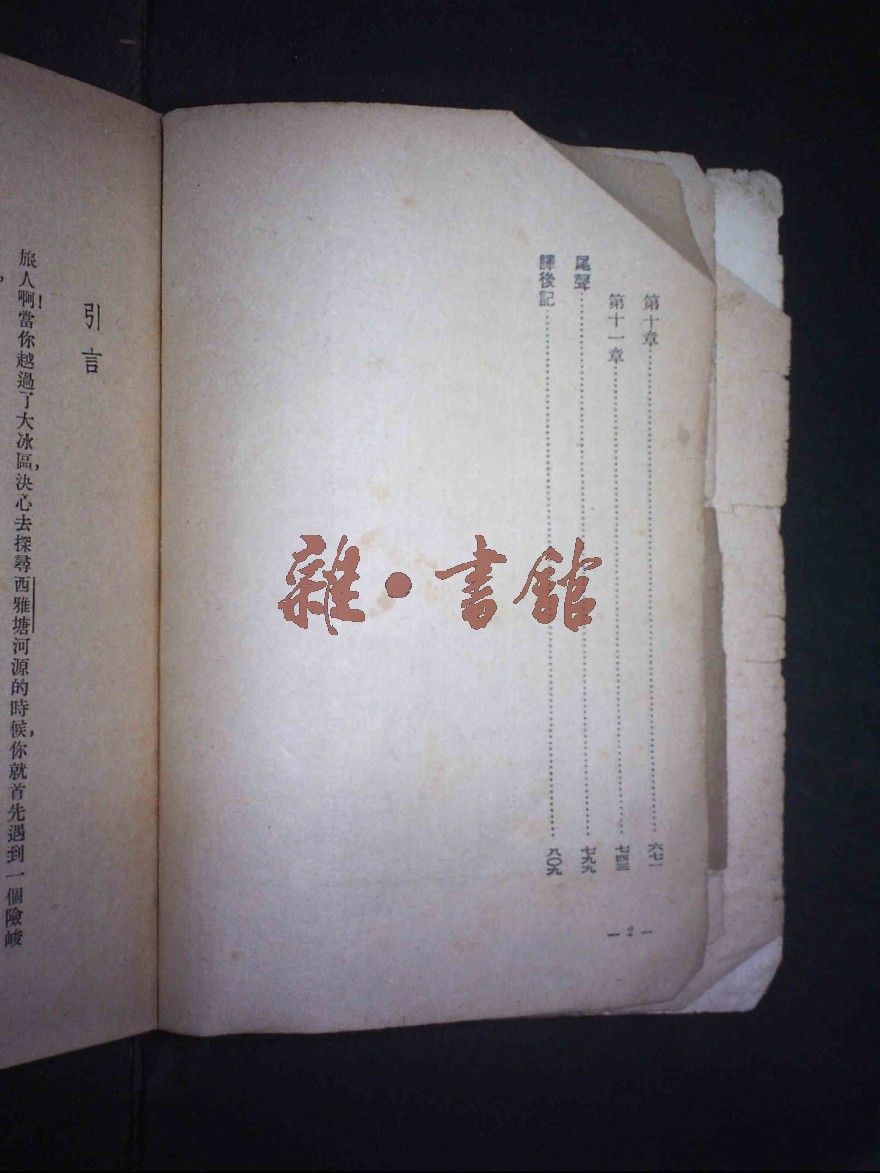 第十章……六七一
第十一章……七四三
尾聲……七九九
譯後記……八〇九
— 2 —
引言
旅人啊!當你越過了大冰區,決心去探尋西雅塘河源的時候,你就首先遇到一個險峻
雜·書館